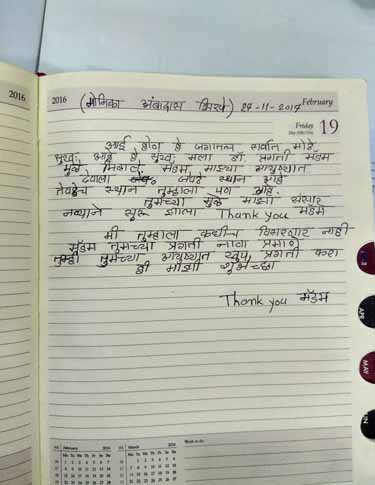 2016
2016
February
(मोनिका अंबादास शिरखे) 27-11-2017
Friday
19
आई होण हे जगातल सर्वात मोठे
सुख आहे हे सुख मला डॉ. प्रगती मॅडम
मुळे मिळाले. मॅडम माझ्या आयुष्यात
देवाला जेवढे स्थान आहे
तेवढेच स्थान तुम्हाला पण आहे.
तुमच्या मुळे माझा संसार
नव्याने सुरू झाला Thank you मॅडम
मी तुम्हाला कधीच विसरणार नाही
मॅडम तुमच्या प्रगती नावा प्रमाणे
तुम्ही तुमच्या आयुष्यात खुप प्रगती करा
ही माझी शुभेच्छा
Thank you मॅडम
APR
MAY
February 2016
March 2016
Work to do